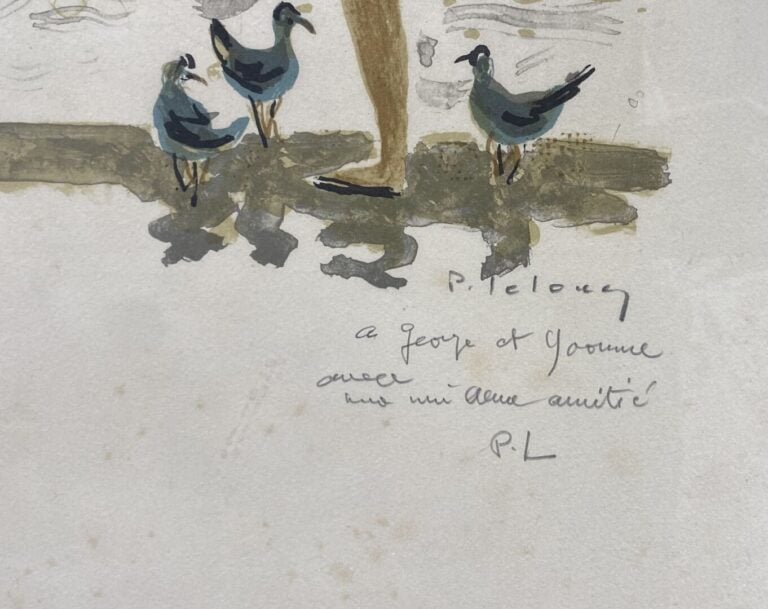 P. Lelong
a George et Yvonne
avec
ma meilleure amitié
P.L